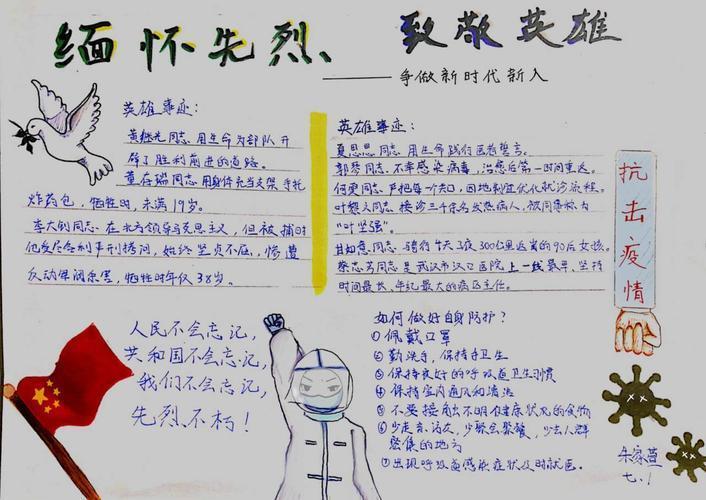 缅怀先烈、致敬英雄
——争做新时代新人
英雄事迹：
黄继光同志 用生命为部队开
辟了胜利前进的道路。
董存瑞同志 用身体充当支架 手托
炸药包，牺牲时，未满19岁。
李大钊同志 在北方领导马克思主义，但被捕时
他受尽各种严刑拷问，始终坚贞不屈，惨遭
反动军阀杀害，牺牲时年仅38岁。
英雄事迹：
夏思思同志 用生命践行医者誓言。
郭琴同志，不幸感染病毒，治愈后第一时间重返。
叶黎文同志 接诊三千余名发热病人，被同事称为
“叶坚强”。
甘如意同志 骑行4天3夜300公里返岗的90后女孩。
同志是武汉市汉口医院上一线最早，坚持
时间最长，年纪最大的病区主任。
抗击疫情
人民不会忘记，
共和国不会忘记，
我们不会忘记，
先烈不朽！
如何做好自身防护？
①佩戴口罩
②勤洗手，保持手卫生
③保持良好的呼吸道卫生习惯
④保持室内通风和清洁
⑤不要接触不明健康状况的食物
⑥少走亲访友，少聚会聚餐，少去人群
密集的地方
⑦出现呼吸道感染症状及时就医。
朱家萱
七.1